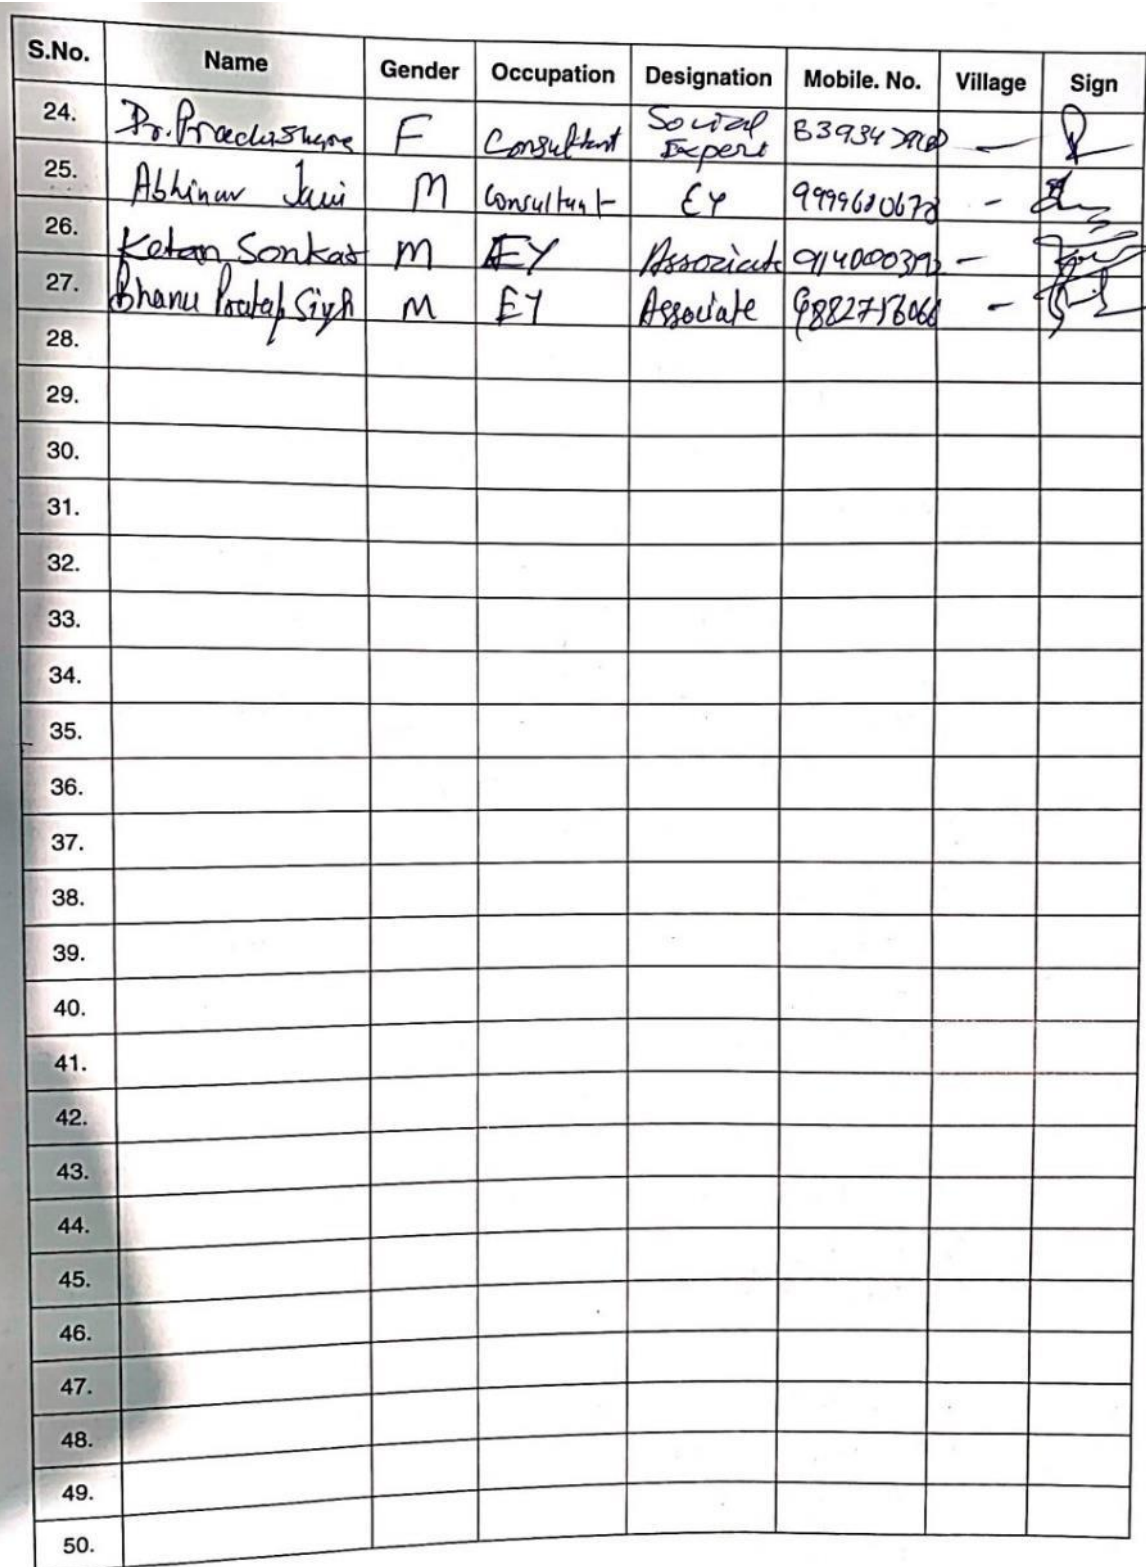 S.No. Name Gender Occupation Designation Mobile. No. Village Sign
24. Dr. F Consultant Social Expert —
25. Abhinav M Consultant EY -
26. Ketan Sonkar M EY Associate -
27. Bhanu Pratap Singh M EY Associate -
28.
29.
30.
31.
32.
33.
34.
35.
36.
37.
38.
39.
40.
41.
42.
43.
44.
45.
46.
47.
48.
49.
50.